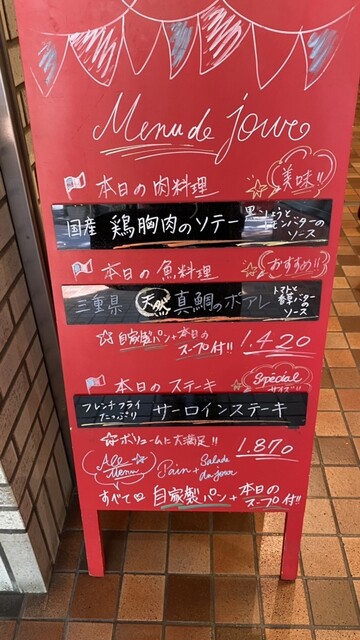 Menu de jour
本日の肉料理
美味!!
国産 鶏胸肉のソテー 黒こしょうとレモンバターのソース
本日の魚料理
おすすめ!!
三重県 天然 真鯛のポアレ トマトと香草バターのソース
自家製パン+本日のスープ付!! 1.420
本日のステーキ
Special サイズ!!
フレンチフライたっぷり サーロインステーキ
ボリュームに大満足!! 1.870
All Menu Pain+Salade du jour
すべて 自家製パン+本日のスープ付!!